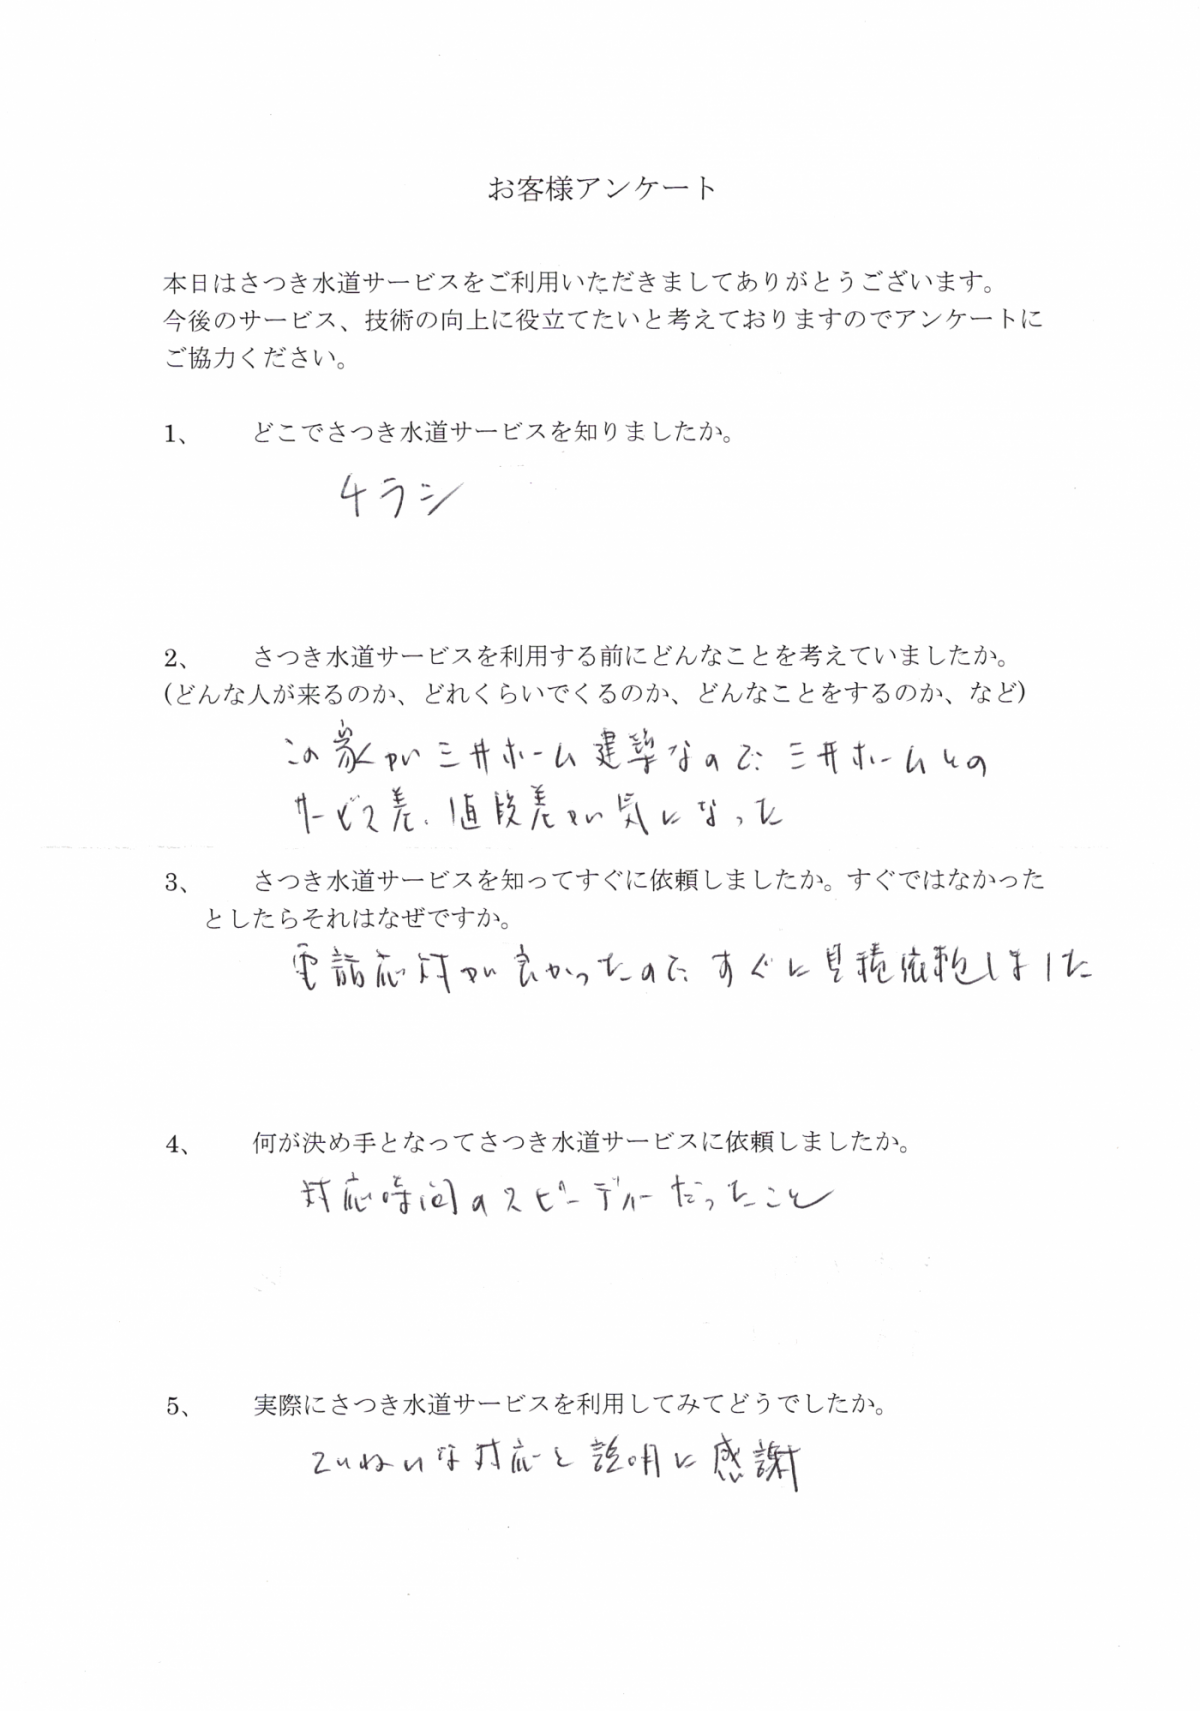 お客様アンケート
本日はさつき水道サービスをご利用いただきましてありがとうございます。
今後のサービス、技術の向上に役立てたいと考えておりますのでアンケートに
ご協力ください。
1、 どこでさつき水道サービスを知りましたか。
チラシ
2、 さつき水道サービスを利用する前にどんなことを考えていましたか。
(どんな人が来るのか、どれくらいでくるのか、どんなことをするのか、など)
この家が三井ホーム建築なので三井ホームとの
サービス差、値段差が気になった
3、 さつき水道サービスを知ってすぐに依頼しましたか。すぐではなかった
としたらそれはなぜですか。
電話応対が良かったので、すぐに見積依頼しました
4、 何が決め手となってさつき水道サービスに依頼しましたか。
対応時間のスピーディーだったこと
5、 実際にさつき水道サービスを利用してみてどうでしたか。
ていねいな対応と説明に感謝